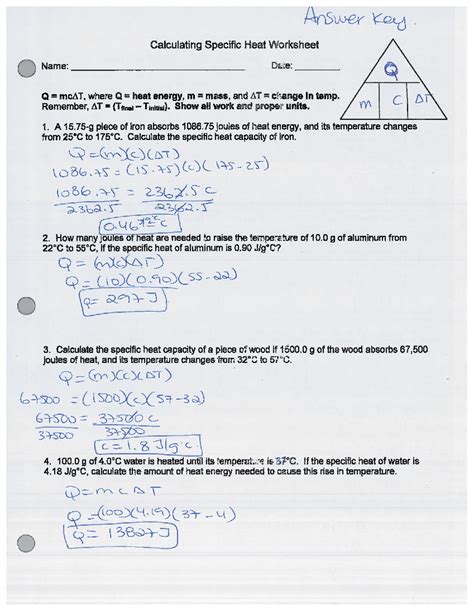 Answer Key.
Calculating Specific Heat Worksheet
Name: Date:
Q
m C ΔT
Q = mcΔT, where Q = heat energy, m = mass, and ΔT = change in temp.
Remember, ΔT = (Tfinal – Tinitial). Show all work and proper units.
1. A 15.75-g piece of iron absorbs 1086.75 joules of heat energy, and its temperature changes
from 25°C to 175°C. Calculate the specific heat capacity of iron.
Q = (m)(c)(ΔT)
1086.75 = (15.75)(c)(175-25)
1086.75 = 2362.5 c
2362.5 2362.5
0.46 = c
2. How many joules of heat are needed to raise the temperature of 10.0 g of aluminum from
22°C to 55°C, if the specific heat of aluminum is 0.90 J/g°C?
Q = (m)(c)(ΔT)
Q = (10)(0.90)(55-22)
Q = 297 J
3. Calculate the specific heat capacity of a piece of wood if 1500.0 g of the wood absorbs 67,500
joules of heat, and its temperature changes from 32°C to 57°C.
Q = (m)(c)(ΔT)
67500 = (1500)(c)(57-32)
67500 = 37500 c
37500 37500
c = 1.8 J/g°C
4. 100.0 g of 4.0°C water is heated until its temperature is 37°C. If the specific heat of water is
4.18 J/g°C, calculate the amount of heat energy needed to cause this rise in temperature.
Q = mcΔT
Q = (100)(4.19)(37-4)
Q = 13827 J